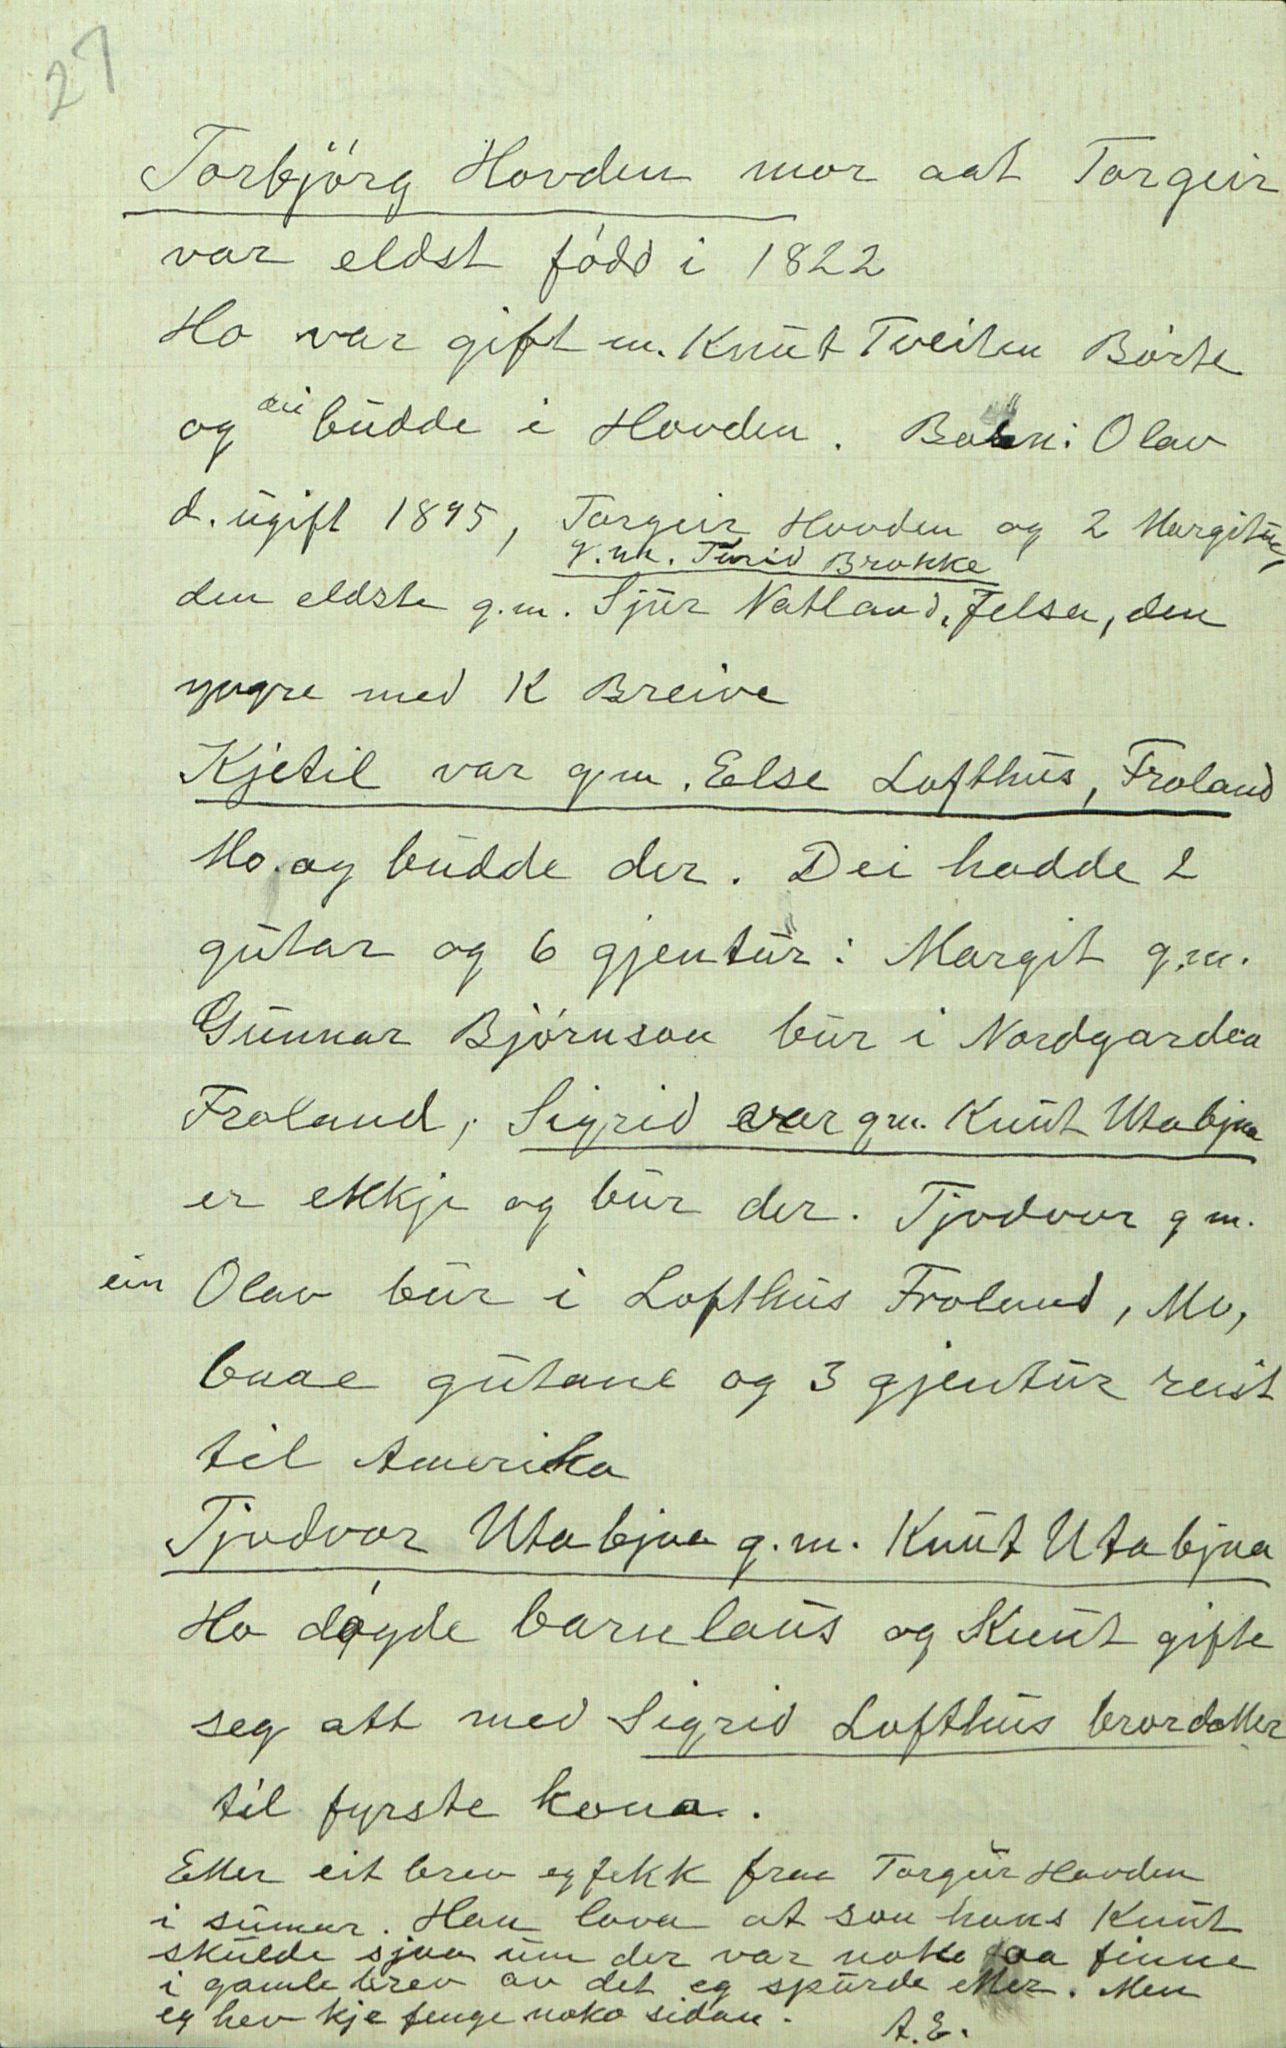 27
Torbjørg Hovden mor aat Torgeir
var eldst fódd i 1822
Ho var gift m. Knut Tveiten Børte
og dei budde i Hovden. Born: Olav
d. ugift 1895, Torgeir Hovden og 2 Margitur,
g.m. Turid Brokke
den eldste g.m. Sjur Natland, Jelsa, den
yngre med K Breive
Kjetil var g.m. Else Lofthus, Froland
Mo. og budde der. Dei hadde 2
gutar og 6 gjentur: Margit g.m.
Gunnar Bjórnson bur i Nordgarden
Froland, Sigrid var g.m. Knut Utabjaa
er ekkje og bur der. Tjodvor g m.
ein Olav bur i Lofthus Froland, Mo,
baae gutane og 3 gjentur reist
til Amerika
Tjodvor Utabjaa g.m. Knut Utabjaa
Ho dóyde barnlaus og Knut gifte
seg att med Sigrid Lofthus brordotter
til fyrste kona.
Etter eit brev eg fekk fraa Torgeir Hovden
i sumar. Han lova at son hans Knut
skulde sjaa um der var noko aa finne
i gamle brev av det eg spurde etter. Men
eg hev kje fenge noko sidan. A.E.